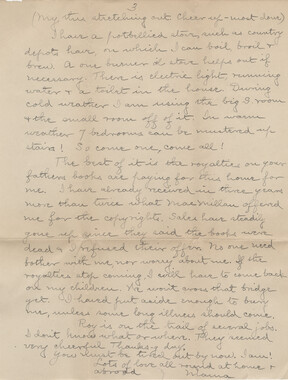 3
(My, this stretching out Cheer up - most done)
I have a potbellied stove, such as country
depots have, on which I can boil, broil &
brew. A one burner oil stove helps out if
necessary. There is electric light, running
water & a toilet in the house. During
cold weather I am using the big D. room
& the small room off of it. In warm
weather 7 bedrooms can be mustered up
stairs! So come one, come all!
The best of it is the royalties on your
fathers books are paying for this home for
me. I have already received in three years
more than twice what Macmillan offered
me for the copyrights. Sales have steadily
gone up since they said the books were
dead & I refused their offer. No one need
bother with me nor worry about me. If the
royalties stop coming, I will have to come back
on my children. We won't cross that bridge
yet. I have put aside enough to bury
me, unless some long illness should come.
Roy is on the trail of several jobs.
I don't know what or where. They seemed
very cheerful Thanks. day.
You must be tired out by now. I am!
Lots of love all round at home &
abroad Mama.